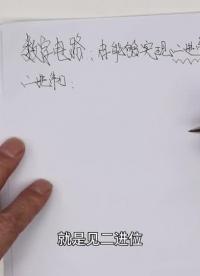 数字电路：存能够实现二进制
二进制：
就是见二进位